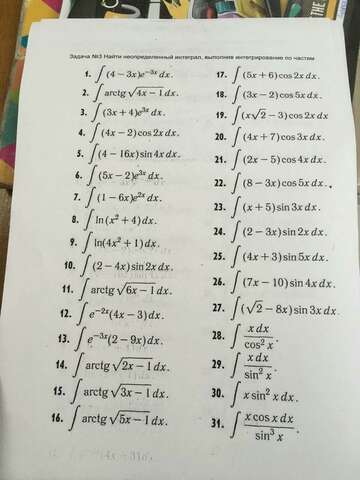 Задача №3 Найти неопределенный интеграл, выполняя интегрирование по частям
1. ∫(4 − 3x)e^{−3x} dx.
2. ∫ arctg √(4x − 1) dx.
3. ∫(3x + 4)e^{3x} dx.
4. ∫(4x − 2) cos 2x dx.
5. ∫(4 − 16x) sin 4x dx.
6. ∫(5x − 2)e^{3x} dx.
7. ∫(1 − 6x)e^{2x} dx.
8. ∫ ln(x² + 4) dx.
9. ∫ ln(4x² + 1) dx.
10. ∫(2 − 4x) sin 2x dx.
11. ∫ arctg √(6x − 1) dx.
12. ∫ e^{−2x}(4x − 3) dx.
13. ∫ e^{−3x}(2 − 9x) dx.
14. ∫ arctg √(2x − 1) dx.
15. ∫ arctg √(3x − 1) dx.
16. ∫ arctg √(5x − 1) dx.
17. ∫(5x + 6) cos 2x dx.
18. ∫(3x − 2) cos 5x dx.
19. ∫(x√2 − 3) cos 2x dx
20. ∫(4x + 7) cos 3x dx.
21. ∫(2x − 5) cos 4x dx.
22. ∫(8 − 3x) cos 5x dx.
23. ∫(x + 5) sin 3x dx.
24. ∫(2 − 3x) sin 2x dx.
25. ∫(4x + 3) sin 5x dx.
26. ∫(7x − 10) sin 4x dx.
27. ∫(√2 − 8x) sin 3x dx.
28. ∫ x dx / cos² x.
29. ∫ x dx / sin² x.
30. ∫ x sin² x dx.
31. ∫ x cos x dx / sin³ x.